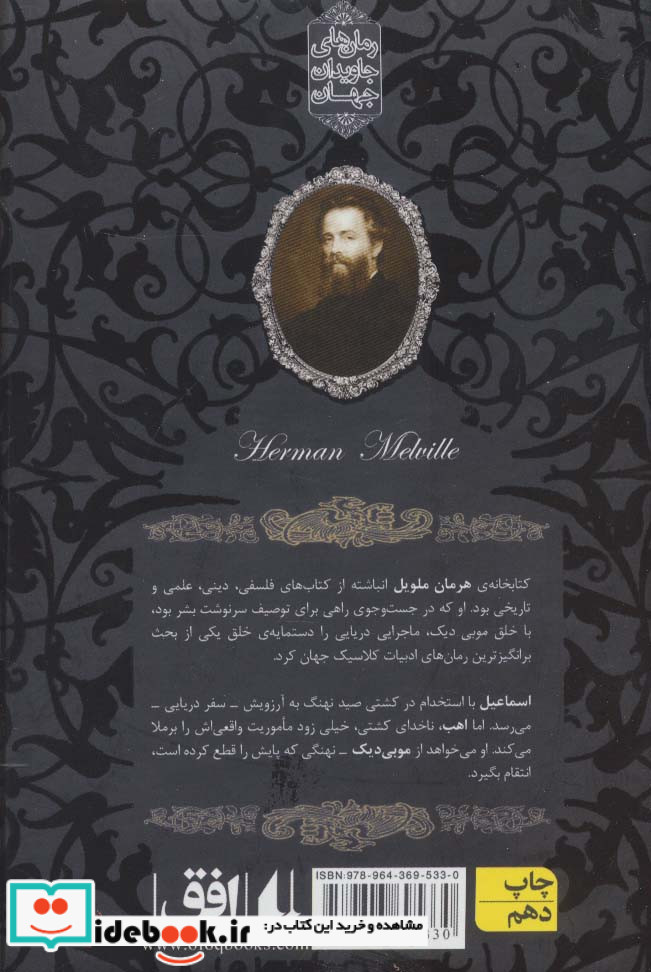 رمان‌های
جاویدان
جهان
Herman Melville
کتابخانه‌ی هرمان ملویل انباشته از کتاب‌های فلسفی، دینی، علمی و
تاریخی بود. او که در جست‌وجوی راهی برای توصیف سرنوشت بشر بود،
با خلق موبی دیک، ماجرایی دریایی را دستمایه‌ی خلق یکی از بحث
برانگیزترین رمان‌های ادبیات کلاسیک جهان کرد.
اسماعیل با استخدام در کشتی صید نهنگ به آرزویش ـ سفر دریایی ـ
می‌رسد. اما اهب، ناخدای کشتی، خیلی زود مأموریت واقعی‌اش را برملا
می‌کند. او می‌خواهد از موبی‌دیک ـ نهنگی که پایش را قطع کرده است،
انتقام بگیرد.
ISBN: 978-964-369-533-0
چاپ
دهم
افق
مشاهده و خرید این کتاب در:
idebook.ir